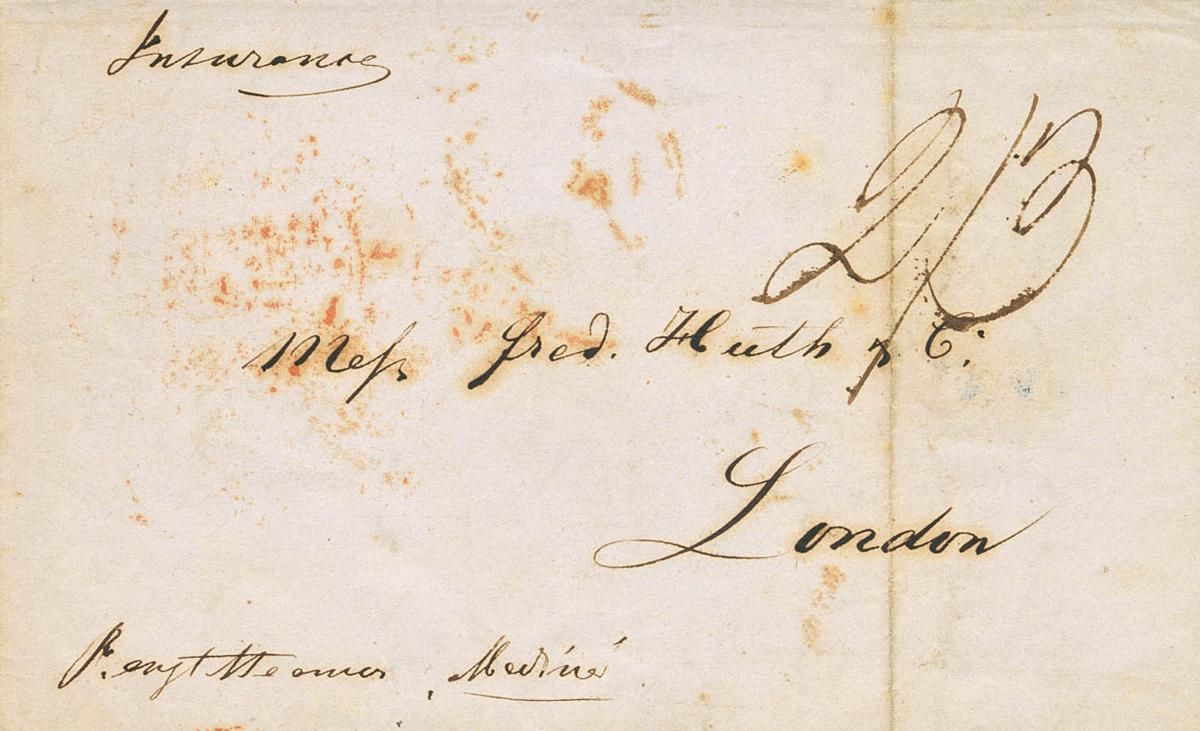 Insurance
2/3
Mess fred. Huth & Co.
London
P. engl Steamer Medina